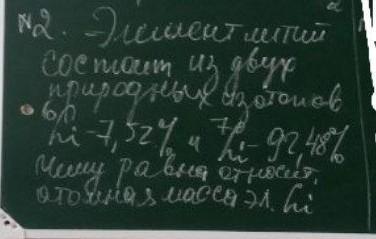 №2. - Элемент литий
состоит из двух
природных изотопов
⁶Li - 7,52% и ⁷Li - 92,48%
Чему равна относит.
атомная масса эл. Li